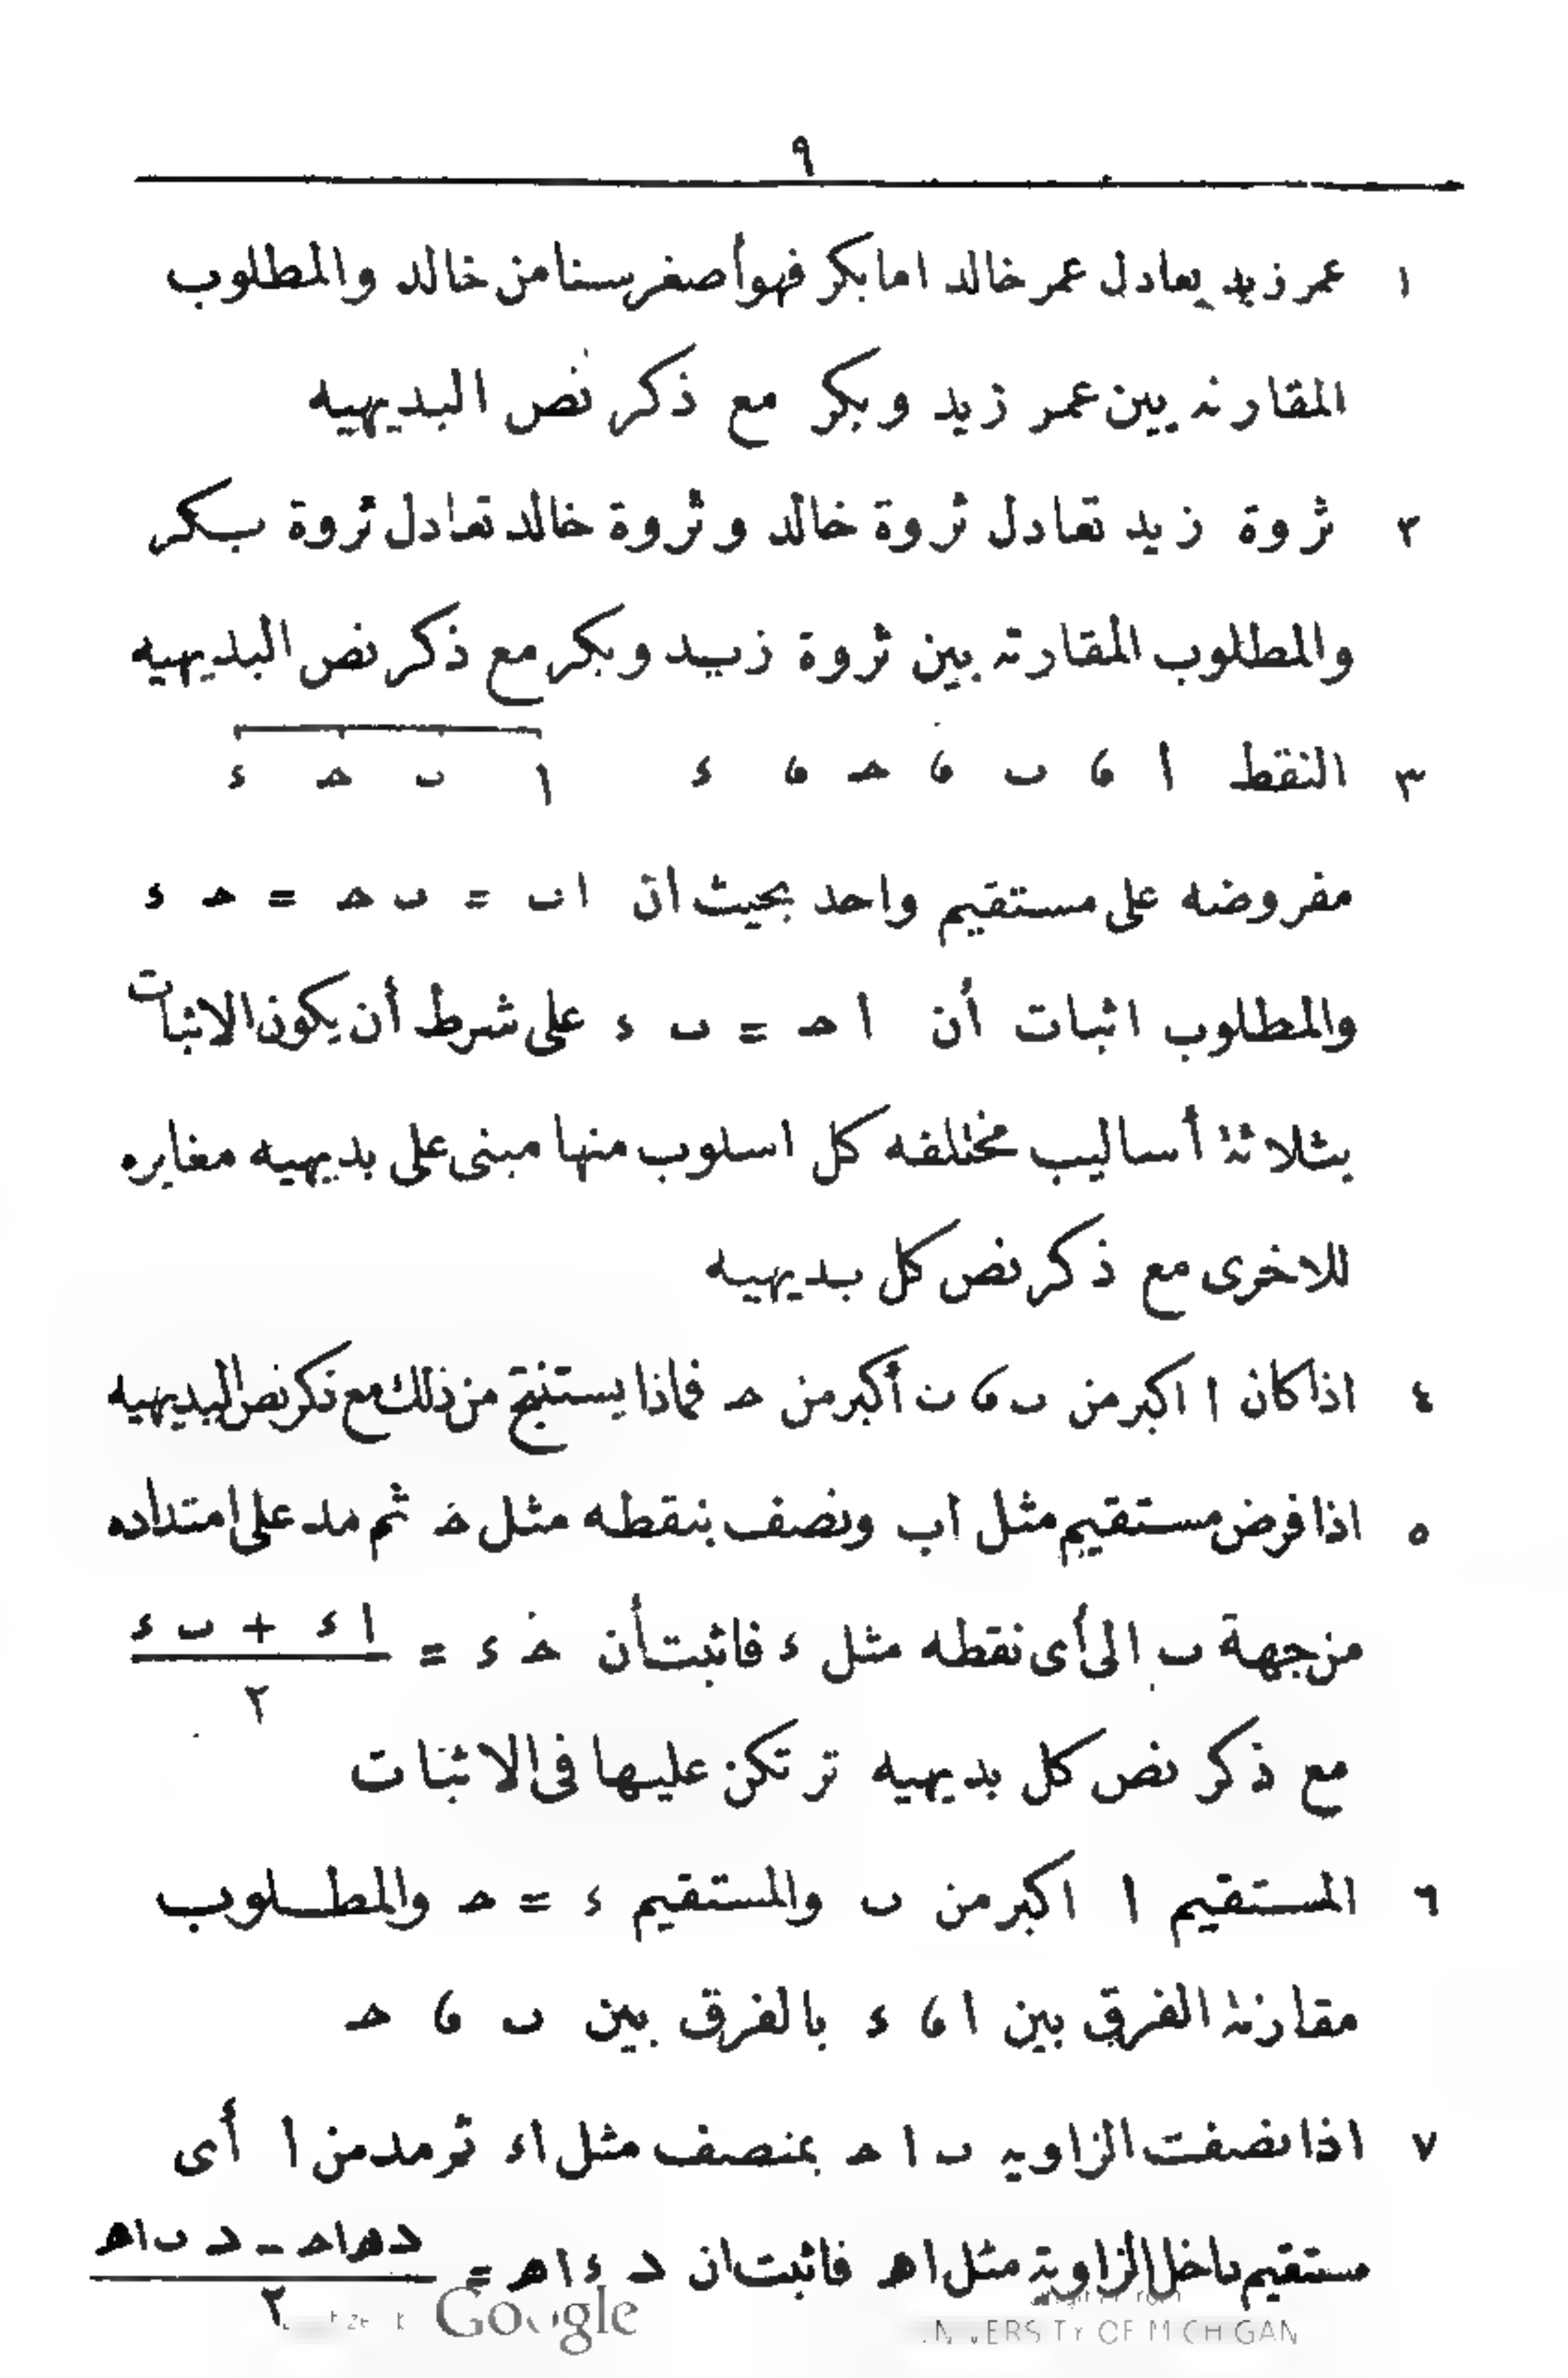 ٩
١ عمر زيد يعادل عمر خالد اما بكر فهو أصغر سنا من خالد والمطلوب
المقارنه بين عمر زيد وبكر مع ذكر نص البديهيه
٢ ثروة زيد تعادل ثروة خالد وثروة خالد تعادل ثروة بكر
والمطلوب المقارنه بين ثروة زيد وبكر مع ذكر نص البديهيه
٣ النقط ا ، ب ، حـ ، ء ا ب حـ ء
مفروضه على مستقيم واحد بحيث ان اب = ب حـ = حـ ء
والمطلوب اثبات أن ا حـ = ب ء على شرط أن يكون الاثبات
بثلاثة أساليب مختلفه كل اسلوب منها مبنى على بديهيه مغايره
للاخرى مع ذكر نص كل بديهيه
٤ اذا كان ا اكبر من ب ، ب أكبر من حـ فماذا يستنتج من ذلك مع ذكر نص البديهيه
٥ اذا فرض مستقيم مثل اب ونصف بنقطه مثل حـ ثم مد على امتداده
من جهة ب الى أى نقطه مثل ء فاثبت أن حـ ء = (ا ء + ب ء) / ٢
مع ذكر نص كل بديهيه ترتكن عليها فى الاثبات
٦ المستقيم ا اكبر من ب والمستقيم ء = حـ والمطلوب
مقارنة الفرق بين ا ، ء بالفرق بين ب ، حـ
٧ اذا نصفت الزاويه ب ا حـ بمنصف مثل اء ثم مد من ا أى
مستقيم داخل الزاوية مثل اهـ فاثبت ان د ء اهـ = (د هـ ا حـ - د ب اهـ) / ٢
Google
UNIVERSITY OF MICHIGAN